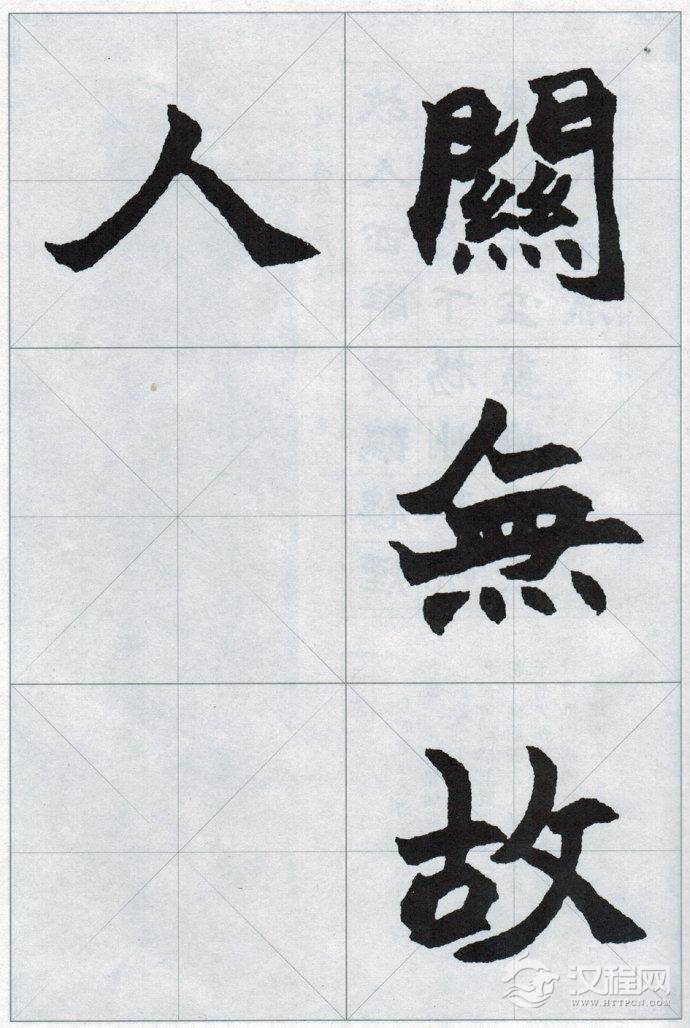 關無故
人
汉程网
WWW.HTTPCN.COM